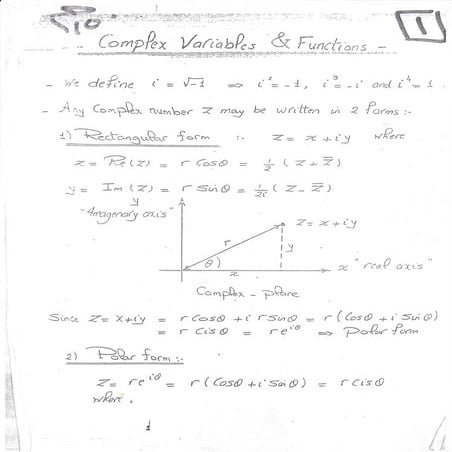 1
Complex Variables & Functions -
- We define i = √-1 ⇒ i² = -1, i³ = -i and i⁴ = 1.
- Any Complex number z may be written in 2 forms :-
1) Rectangular form :- z = x + iy where
x = Re(z) = r Cosθ = 1/2 (z + z̅)
y = Im(z) = r Sinθ = 1/2i (z - z̅)
y
"Imagenary axis"
z = x + iy
r
y
θ
x
x "real axis"
Complex - plane
Since z = x+iy = r Cosθ + i r Sinθ = r (Cosθ + i Sinθ)
= r Cisθ = r e^{iθ} ⇒ Polar form
2) Polar form :-
z = r e^{iθ} = r (Cosθ + i Sinθ) = r Cisθ
where,
1